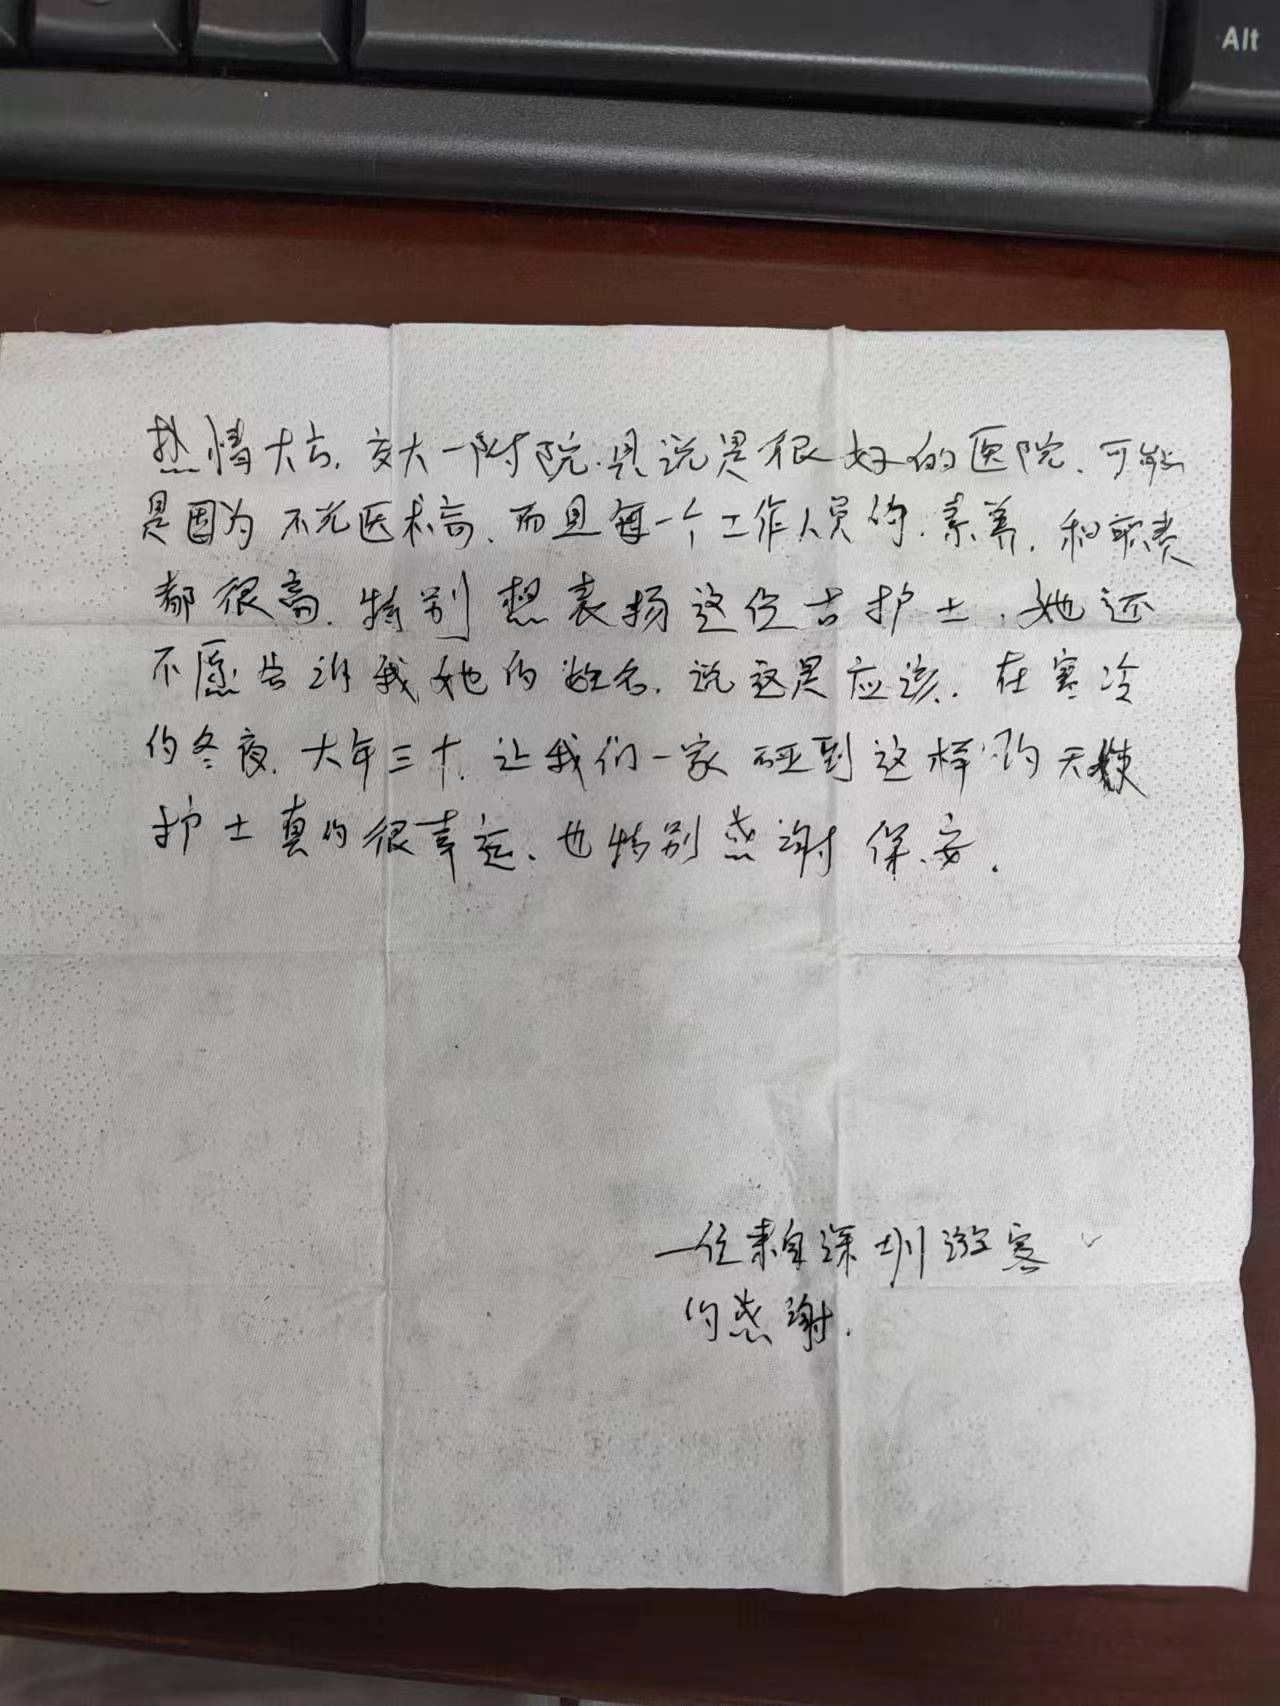 Alt
热情大方，交大一附院，具说是很好的医院，可能
是因为不光医术高，而且每一个工作人员的，素养，和职责
都很高，特别想表扬这位古护士，她还
不愿告诉我她的姓名，说这是应该，在寒冷
的冬夜，大年三十，让我们一家碰到这样的天使
护士真的很幸运，也特别感谢保安．
一位来自深圳游客
的感谢．